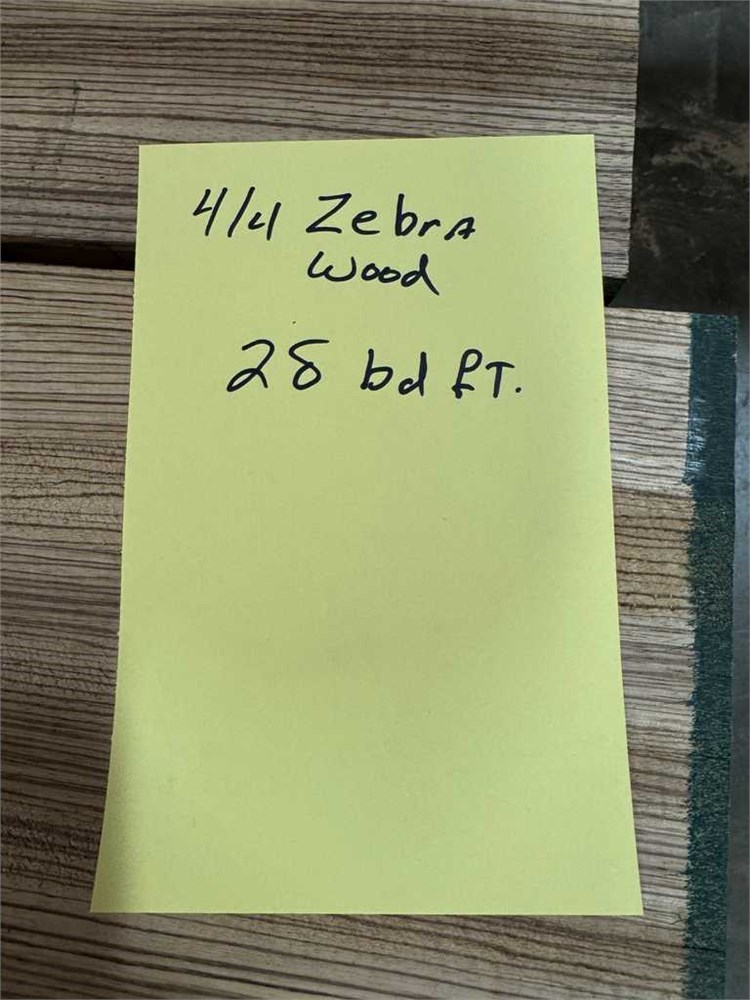 4/4 Zebra
Wood
28 bd ft.